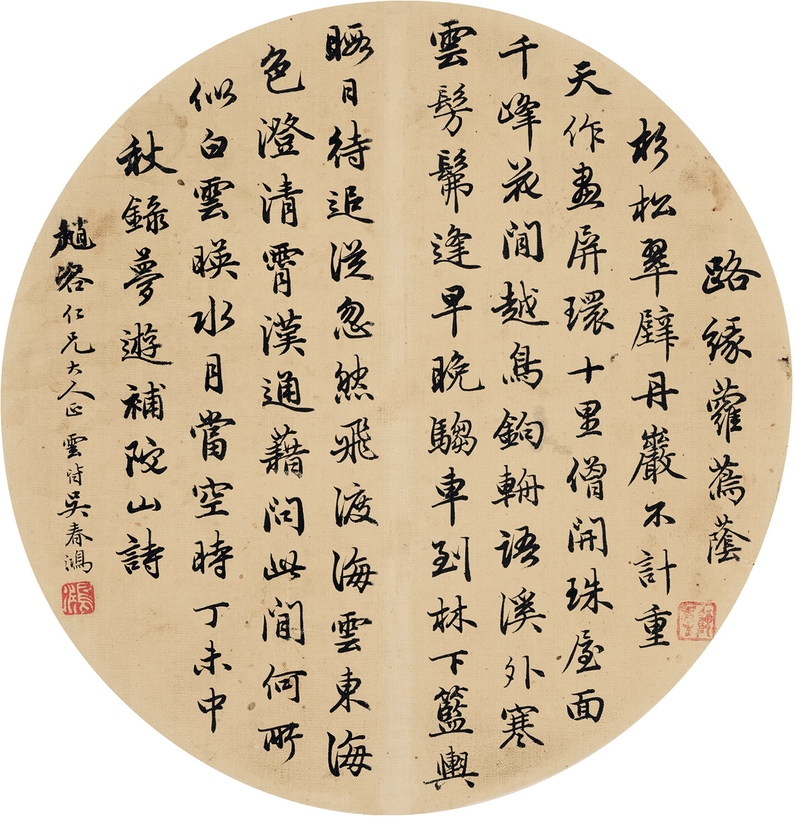 路緣蘿蔦蔭
杉松翠壁丹巖不計重
天作畫屏環十里僧開珠屋面
千峰花間越鳥鉤輈語溪外寒
雲髣髴逢早晚驺車到林下籃輿
暇日待追從忽然飛渡海雲東海
色澄清霄漢通藉問此間何所
似白雲暎水月當空時丁未中
秋錄夢遊補陀山詩
趙 仁兄大人正 雲 吳春鴻